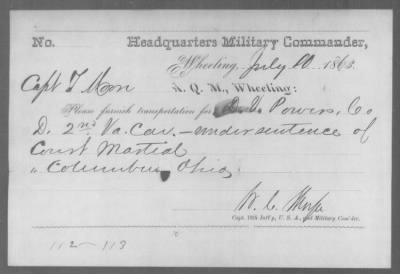 No. Headquarters Military Commander,
Wheeling, July 10 1863.
Capt
A. Q. M., Wheeling:
Please furnish transportation for Powers, Co
D. 2nd Va. Cav. – under sentence of
Court Martial
" Columbus Ohio
W. C.
Capt. 15th Inft'y, U. S. A., and Military Com'der.
112–113